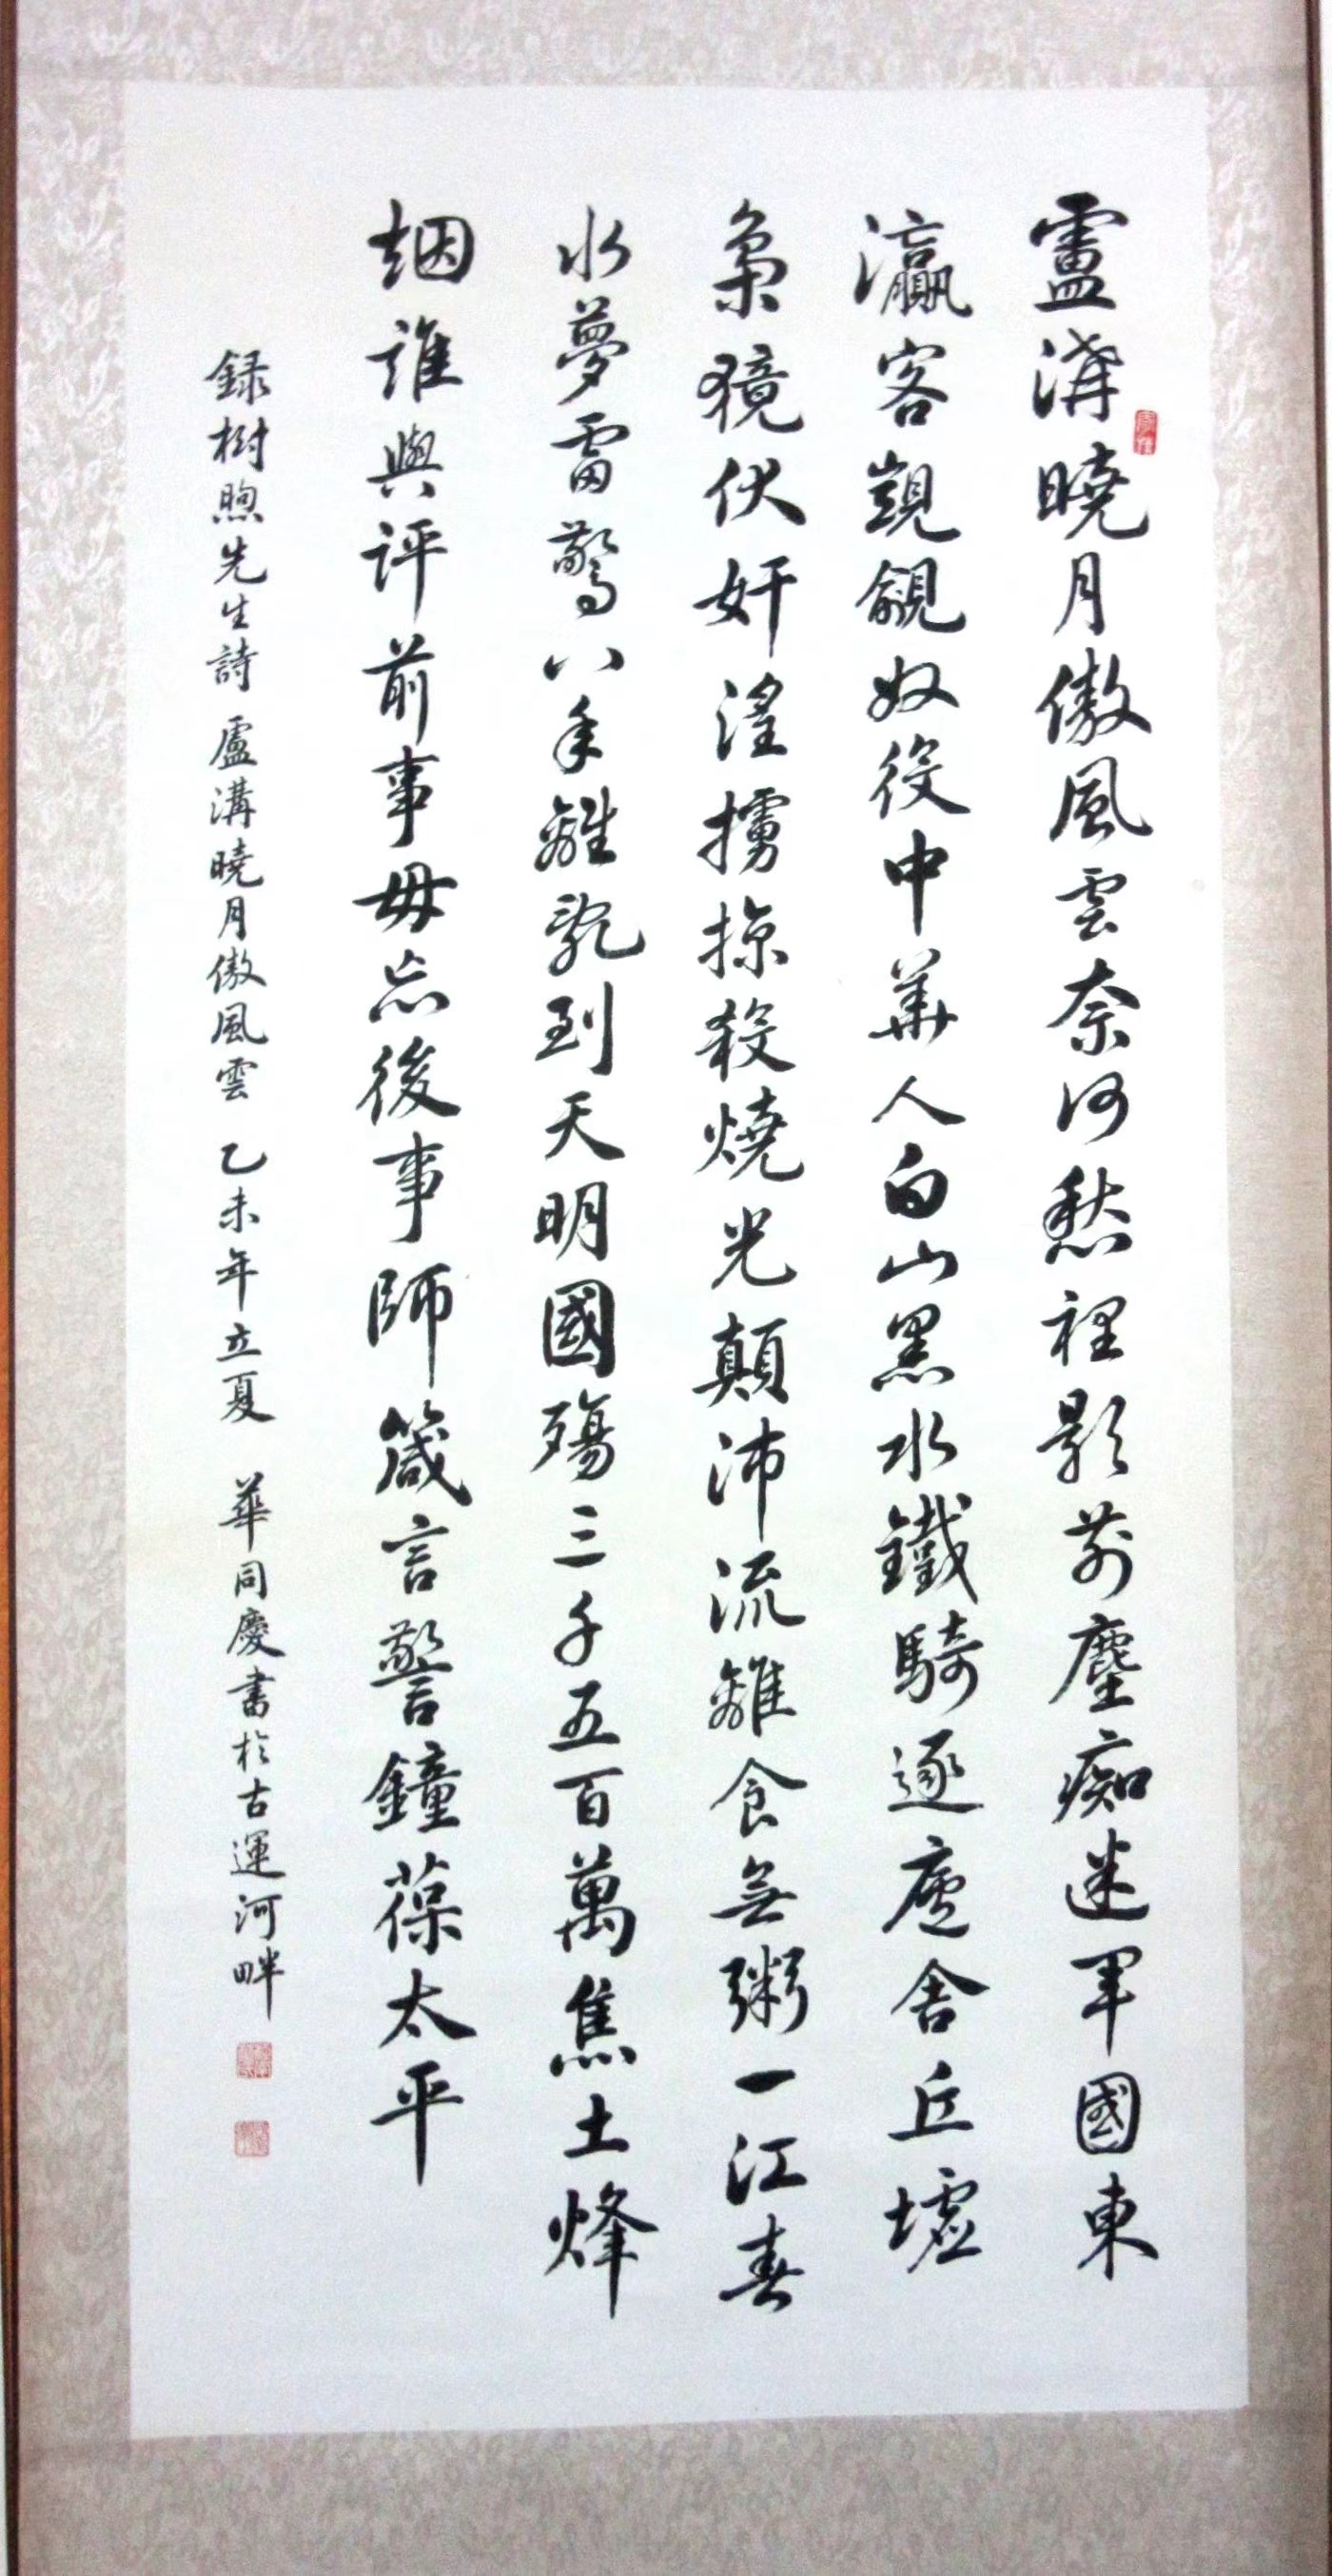 盧溝曉月傲風雲奈何愁裡影前塵痴迷軍國東
瀛客覬覦奴役中華人白山黑水鐵騎逐廬舍丘墟
梟獍伏奸淫擄掠殺燒光顛沛流離食無粥一江春
水夢雷驚八年離亂到天明國殤三千五百萬焦土烽
烟誰與評前事毋忘後事師箴言警鐘葆太平
録樹煦先生詩盧溝曉月傲風雲 乙未年立夏 華同慶書於古運河畔